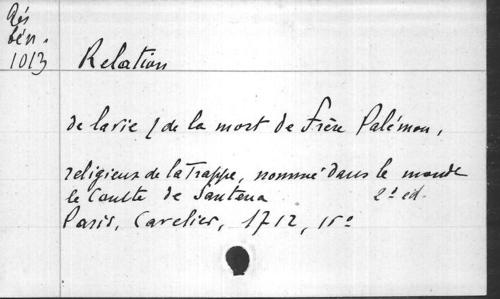 Rés
bén.
1013
Relation
de la vie / de la mort de Frère Palémon,
religieux de la Trappe, nommé dans le monde
le Comte de Santena 2e ed.
Paris, Cavelier, 1712,